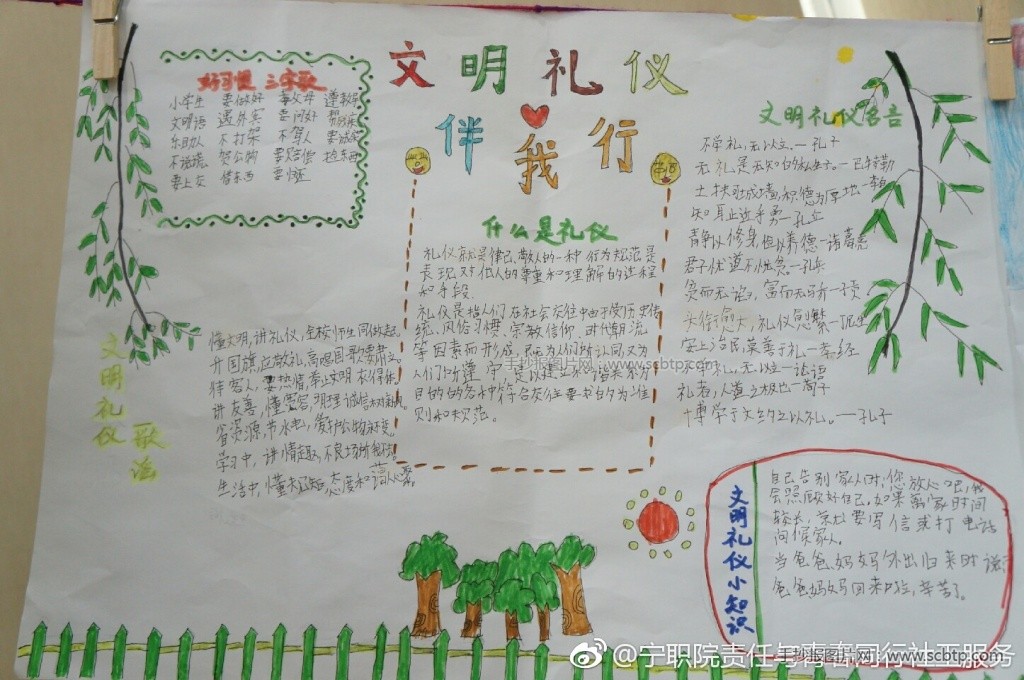 文明礼仪
伴我行
好习惯 三字歌
小学生 要做好 尊父母 遵教导
文明语 遇外宾 要问好
乐助人 不打架 不骂人 要诚实
不说谎 贺公物 要赔偿 捡东西
要上交 借东西 要归还
什么是礼仪
礼仪就是律己、敬人的一种 行为规范是
表现对他人的尊重和理解的过程
和手段。
礼仪是指人们在社会交往中由于受历史传
统、风俗习惯、宗教信仰、时代潮流
等因素而形成,既为人们所认同,又为
人们所遵
目的的各种符合交往要求的
则和规范。
文明礼仪名言
不学礼,无以立.—孔子
无礼是无知的私生子。—巴特勒
土扶可成墙,积德为厚地—李白
知耻近乎勇—孔丘
静以修身,俭以养德—诸葛亮
君子忧道不忧贫—孔丘
贫而无谄,富而无骄—子贡
头衔愈大,礼仪愈繁—
安上治民,莫善于礼—孝经
礼,无以立—论语
礼者,人道之极也—荀子
博学于文,约之以礼。——孔子
文明礼仪
歌谣
懂文明,讲礼仪,全校师生同做起。
升国旗,应敬礼,高唱国歌要肃立。
待客人,要热情,举止文明
讲友善,懂宽容,明理诚信
省资源,节水电,爱护公物
学习中,讲情趣,不良场所
生活中,懂
文明礼仪小知识
自己告别家人时,您放心吧,我
会照顾好自己。如果离家时间
较长,常常要写信或打电话
问候家人。
当爸爸妈妈外出归来时说:
爸爸妈妈回来啦,辛苦了。
手抄报图片网 www.scbtp.com
手抄报图片网 www.scbtp.com
@宁职院责任与青春同行社工服务